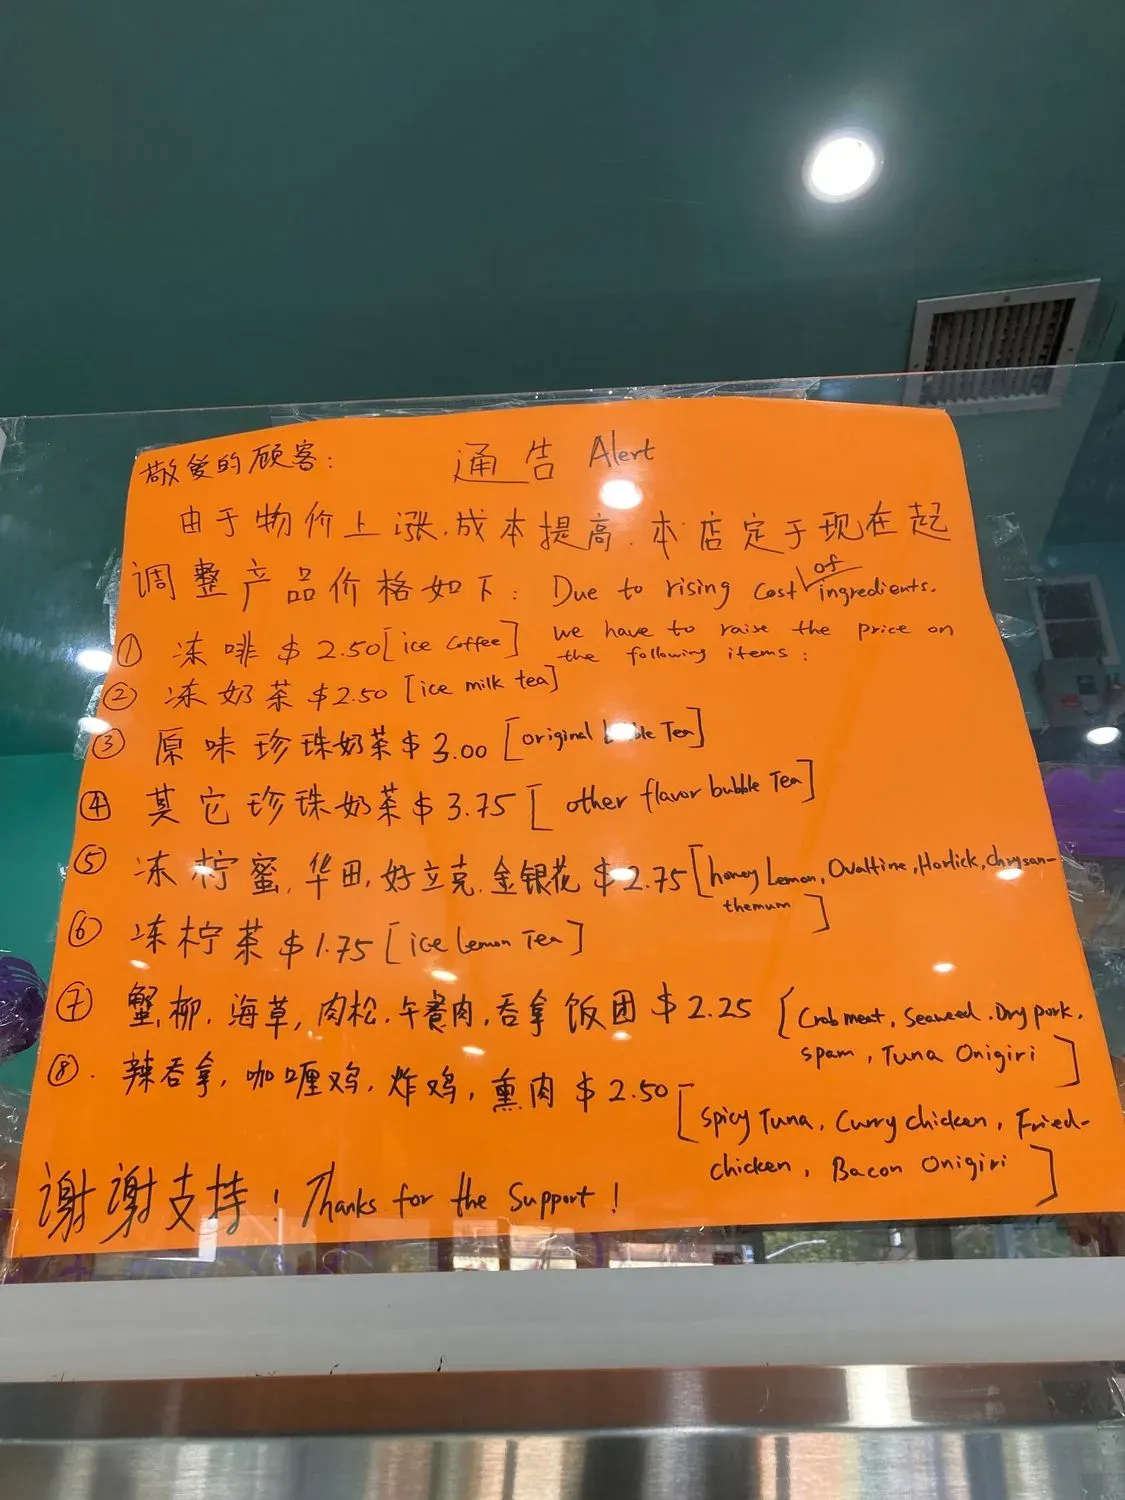 敬爱的顾客: 通告 Alert
由于物价上涨,成本提高.本店定于现在起
调整产品价格如下: Due to rising cost of ingredients.
we have to raise the price on
the following items:
① 冻啡 $2.50 [ice coffee]
② 冻奶茶 $2.50 [ice milk tea]
③ 原味珍珠奶茶 $3.00 [original bubble Tea]
④ 其它珍珠奶茶 $3.75 [other flavor bubble Tea]
⑤ 冻柠蜜,华田,好立克,金银花 $2.75 [honey Lemon, Ovaltine, Horlick, Chrysan-
themum]
⑥ 冻柠茶 $1.75 [ice Lemon Tea]
⑦ 蟹柳,海草,肉松,午餐肉,吞拿饭团 $2.25 [Crab meat, Seaweed. Dry pork,
spam, Tuna Onigiri]
⑧. 辣吞拿,咖喱鸡,炸鸡,熏肉 $2.50 [Spicy Tuna, Curry chicken, Fried-
chicken, Bacon Onigiri]
谢谢支持! Thanks for the Support!